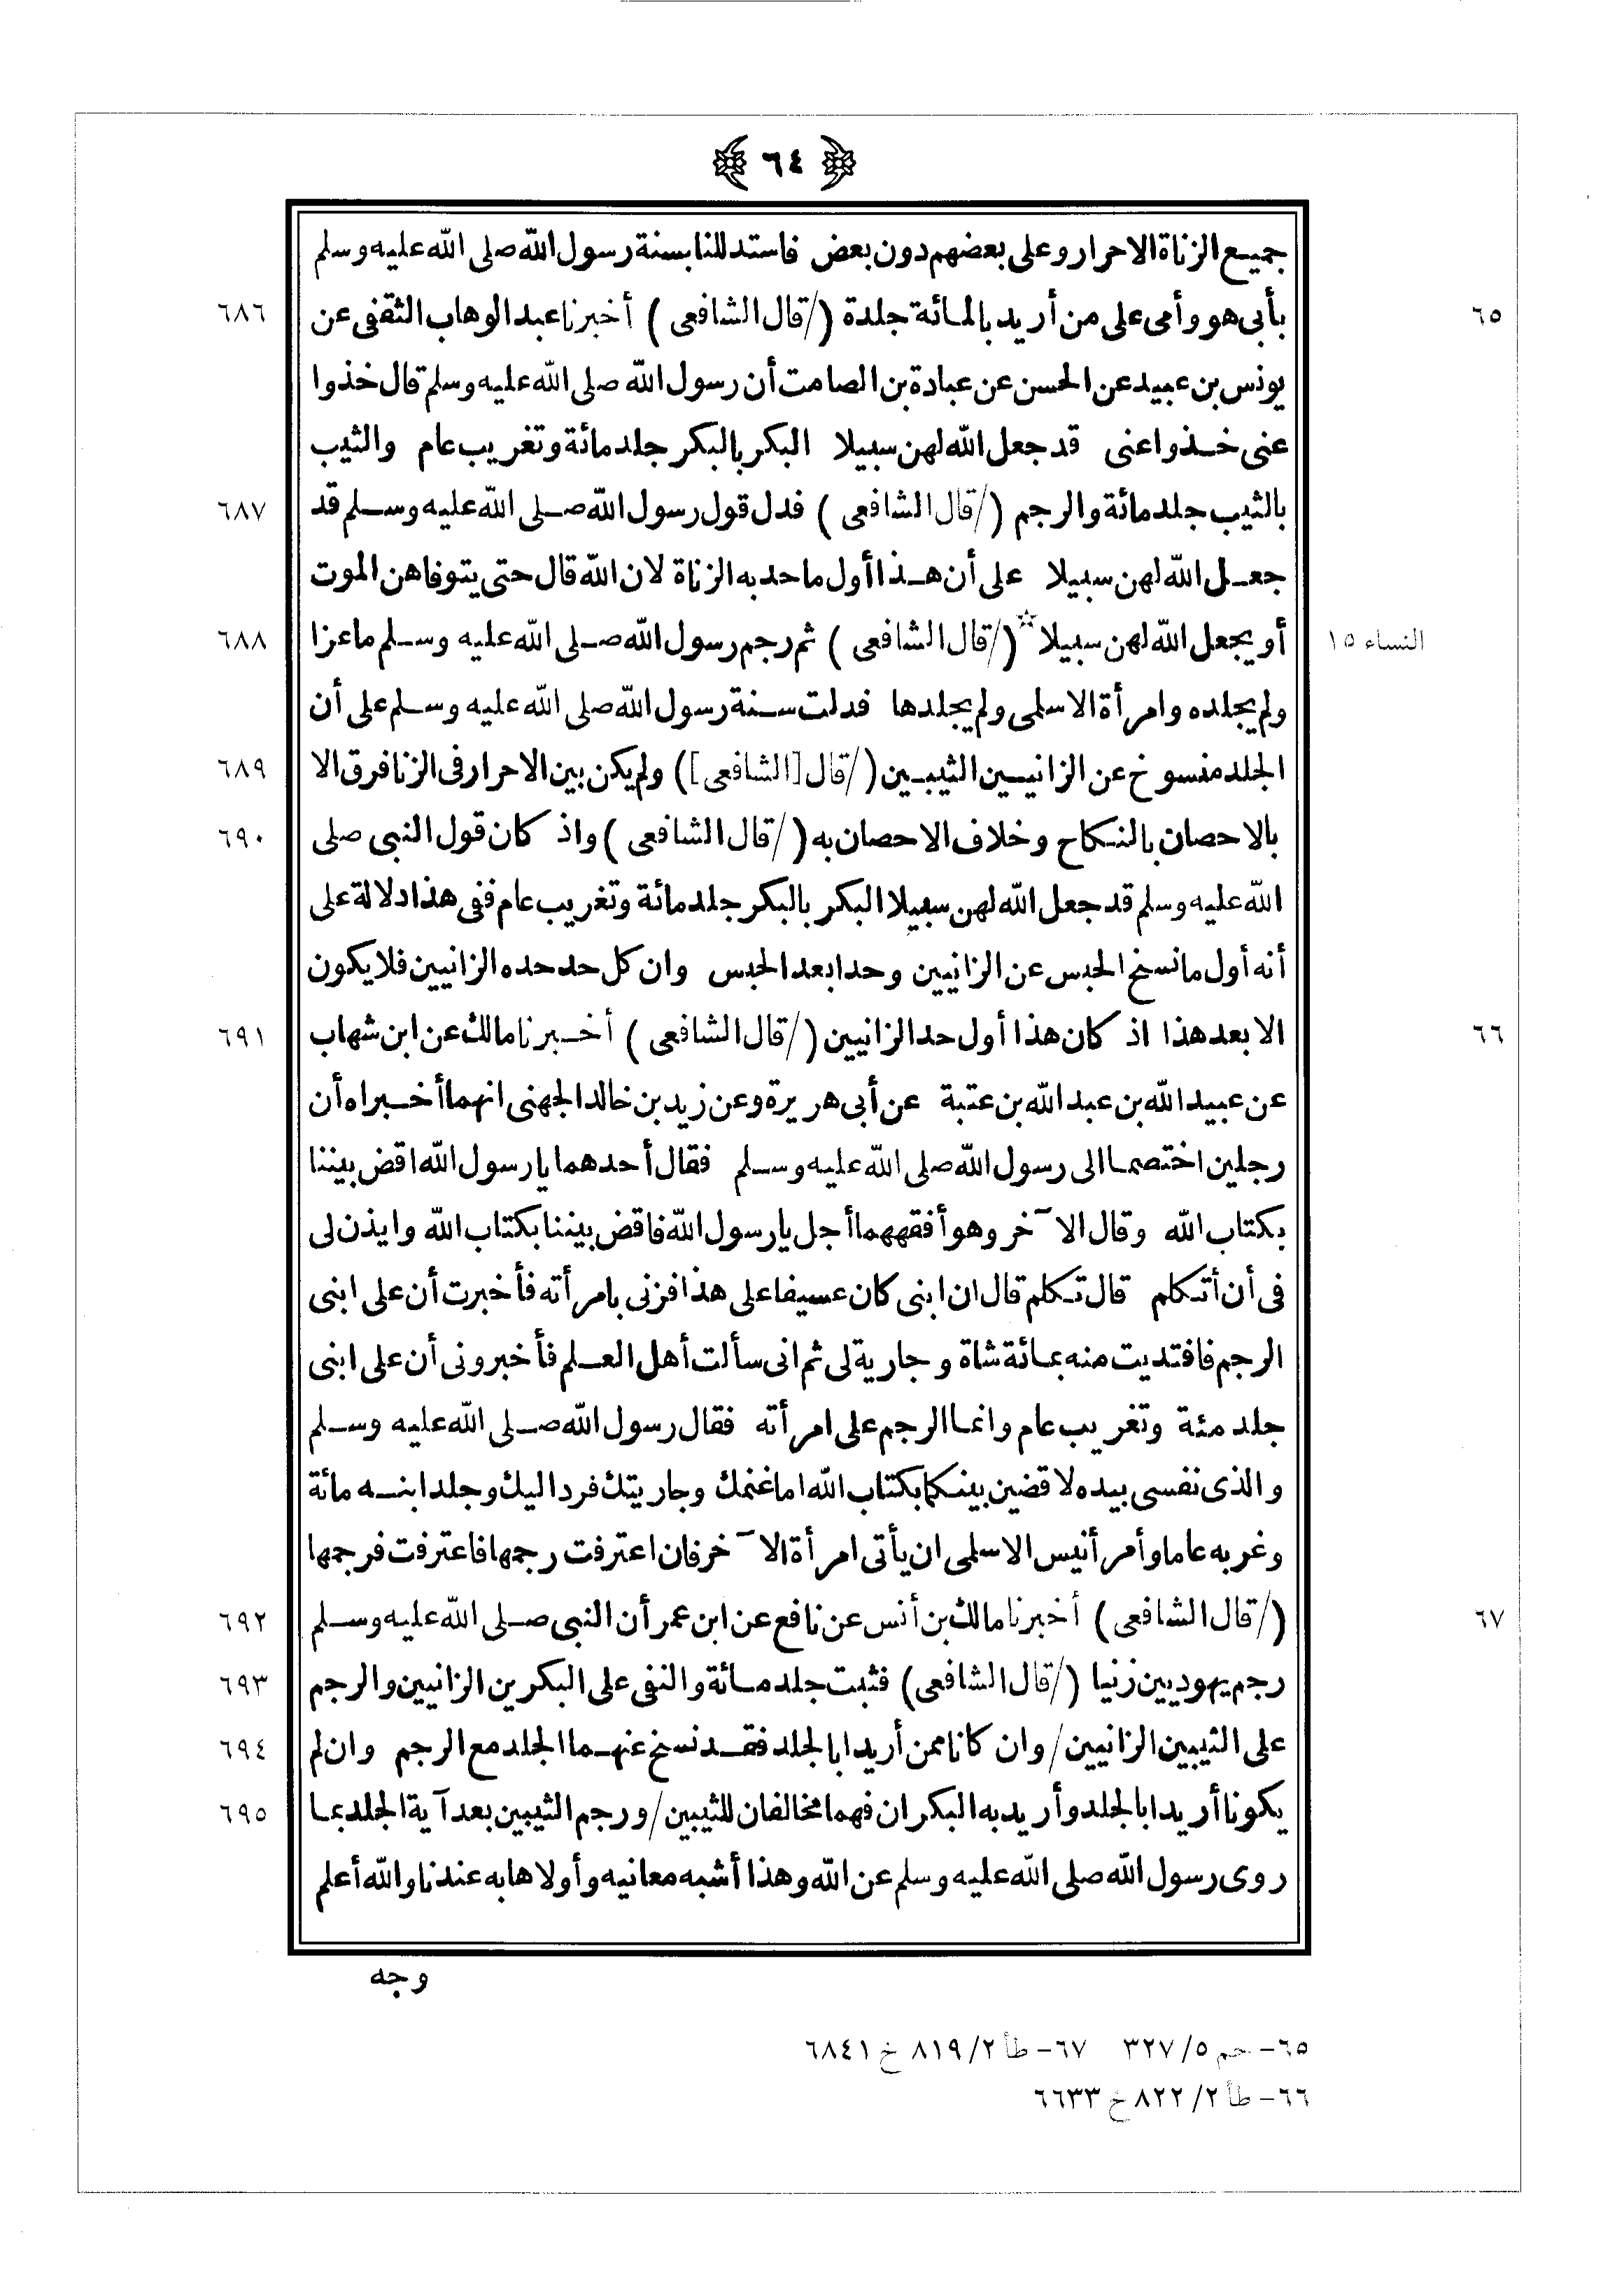 ٦٤
جميع الزناة الاحرار وعلى بعضهم دون بعض فاستدللنا بسنة رسول الله صلى الله عليه وسلم
٦٥ بأبى هو وأمى على من أريد بالمائة جلدة (/قال الشافعى) أخبرنا عبد الوهاب الثقفى عن ٦٨٦
يونس بن عبيد عن الحسن عن عبادة بن الصامت أن رسول الله صلى الله عليه وسلم قال خذوا
عنى خذوا عنى قد جعل الله لهن سبيلا البكر بالبكر جلد مائة وتغريب عام والثيب
بالثيب جلد مائة والرجم (/قال الشافعى) فدل قول رسول الله صلى الله عليه وسلم قد ٦٨٧
جعل الله لهن سبيلا على أن هذا أول ما حد به الزناة لان الله قال حتى يتوفاهن الموت
النساء ١٥ أو يجعل الله لهن سبيلا☆ (/قال الشافعى) ثم رجم رسول الله صلى الله عليه وسلم ماعزا ٦٨٨
ولم يجلده وامرأة الاسلمى ولم يجلدها فدلت سنة رسول الله صلى الله عليه وسلم على أن
الجلد منسوخ عن الزانيين الثيبين (/قال [الشافعى]) ولم يكن بين الاحرار فى الزنا فرق الا ٦٨٩
بالاحصان بالنكاح وخلاف الاحصان به (/قال الشافعى) واذ كان قول النبى صلى ٦٩٠
الله عليه وسلم قد جعل الله لهن سبيلا البكر بالبكر جلد مائة وتغريب عام ففى هذا دلالة على
أنه أول ما نسخ الحبس عن الزانيين وحدا بعد الحبس وان كل حد حده الزانيين فلا يكون
٦٦ الا بعد هذا اذ كان هذا أول حد الزانيين (/قال الشافعى) أخبرنا مالك عن ابن شهاب ٦٩١
عن عبيد الله بن عبد الله بن عتبة عن أبى هريرة وعن زيد بن خالد الجهنى انهما أخبراه أن
رجلين اختصما الى رسول الله صلى الله عليه وسلم فقال أحدهما يا رسول الله اقض بيننا
بكتاب الله وقال الآخر وهو أفقههما أجل يا رسول الله فاقض بيننا بكتاب الله وايذن لى
فى أن أتكلم قال تكلم قال ان ابنى كان عسيفا على هذا فزنى بامرأته فأخبرت أن على ابنى
الرجم فافتديت منه بمائة شاة وجارية لى ثم انى سألت أهل العلم فأخبرونى أن على ابنى
جلد مئة وتغريب عام وانما الرجم على امرأته فقال رسول الله صلى الله عليه وسلم
والذى نفسى بيده لاقضين بينكما بكتاب الله اما غنمك وجاريتك فرد اليك وجلد ابنه مائة
وغربه عاما وأمر أنيس الاسلمى ان يأتى امرأة الآخر فان اعترفت رجمها فاعترفت فرجمها
٦٧ (/قال الشافعى) أخبرنا مالك بن أنس عن نافع عن ابن عمر أن النبى صلى الله عليه وسلم ٦٩٢
رجم يهوديين زنيا (/قال الشافعى) فثبت جلد مائة والنفى على البكرين الزانيين والرجم ٦٩٣
على الثيبين الزانيين/وان كانا ممن أريدا بالجلد فقد نسخ عنهما الجلد مع الرجم وان لم ٦٩٤
يكونا أريدا بالجلد وأريد به البكران فهما مخالفان للثيبين/ورجم الثيبين بعد آية الجلد بما ٦٩٥
روى رسول الله صلى الله عليه وسلم عن الله وهذا أشبه معانيه وأولاها به عندنا والله أعلم
وجه
٦٥- حم ٥/ ٣٢٧ ٦٧- طأ ٢/ ٨١٩ خ ٦٨٤١
٦٦- طأ ٢/ ٨٢٢ خ ٦٦٣٣